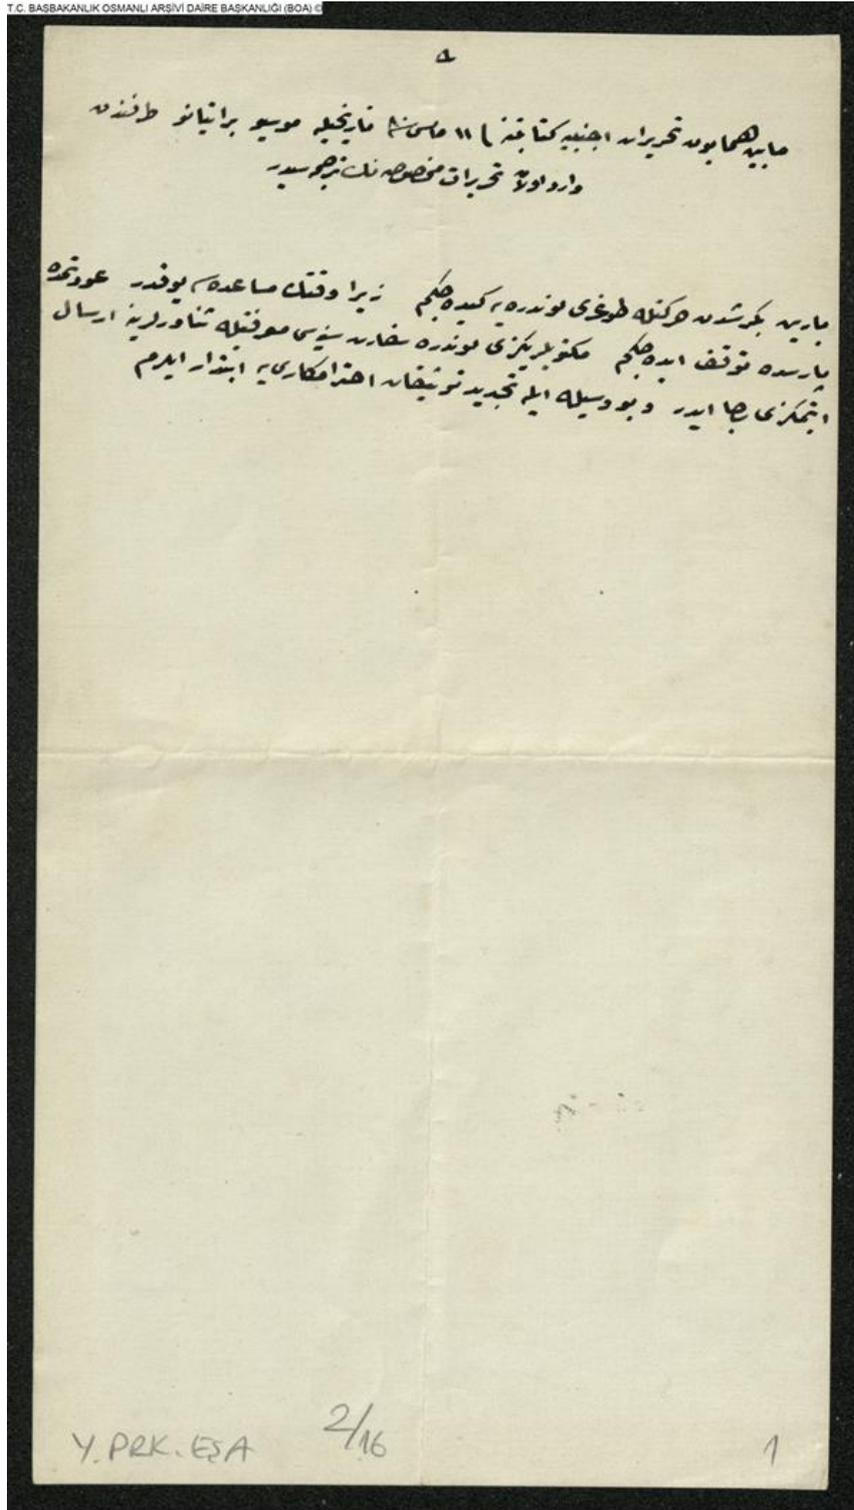 T.C. BAŞBAKANLIK OSMANLI ARŞİVİ DAİRE BAŞKANLIĞI (BOA) ©
مابين همايون تحريرات اجنبيه كتابتنه ١١ مارس تاريخيله موسيو براتيانو طرفندن
وارد اولان تحريرات مخصوصه نك ترجمه سيدر
يارين بكرشدن حركتله طوغرى لوندره يه كيده جكم زيرا وقتك مساعده سى يوقدر عودتمده
پارسده توقف ايده جكم مكتوبلريكزى لوندره سفارت سنيه سى معرفتيله ثناورلرينه ارسال
ايتمكزى رجا ايدر و بو وسيله ايله تجديد توثيقات احترامكارى يه ابتدار ايلرم
Y. PRK. EŞA
2/16
1